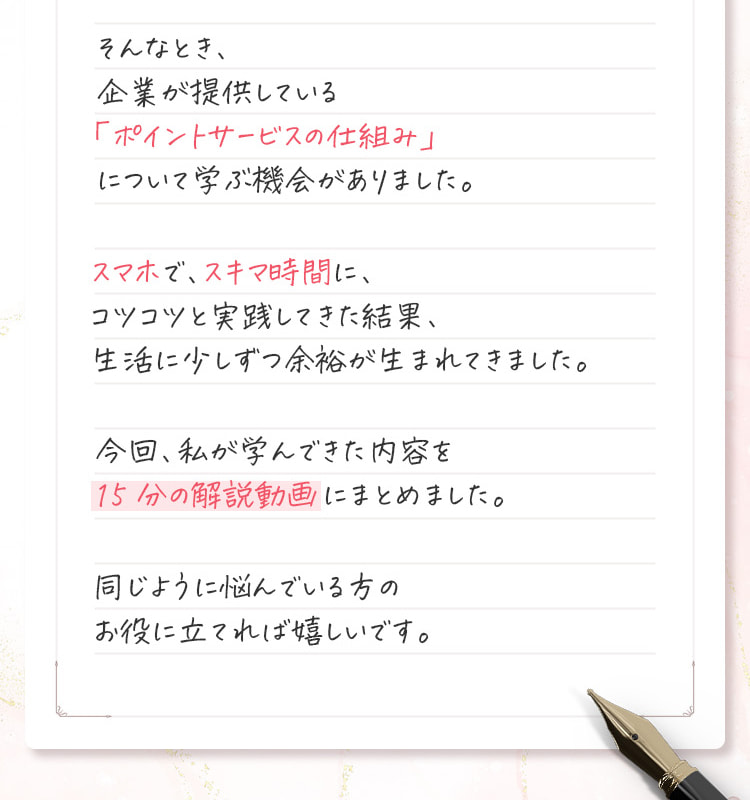 そんなとき、
企業が提供している
「ポイントサービスの仕組み」
について学ぶ機会がありました。
スマホで、スキマ時間に、
コツコツと実践してきた結果、
生活に少しずつ余裕が生まれてきました。
今回、私が学んできた内容を
15分の解説動画にまとめました。
同じように悩んでいる方の
お役に立てれば嬉しいです。